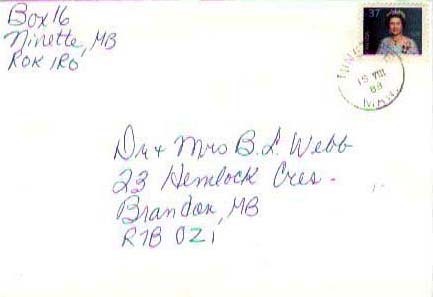 Box 16
Ninette, MB
R0K 1R0
37
15 VIII
88
MAN.
Dr + Mrs B.L. Webb
23 Hemlock Cres.
Brandon, MB
R7B 0Z1